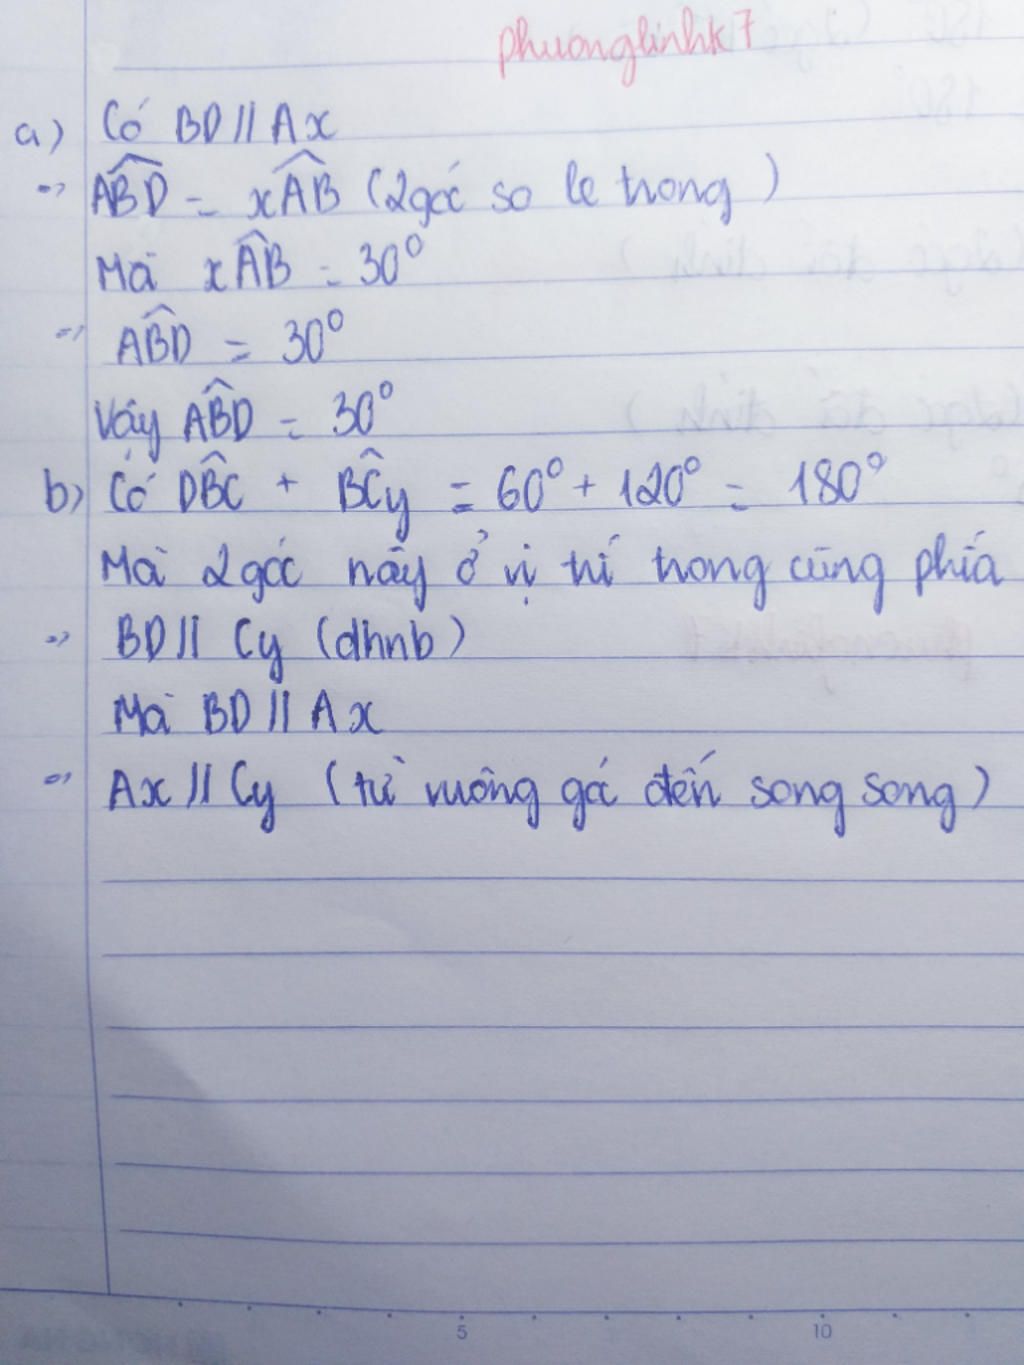 phuonglinhk7
a) Có BD // Ax
=> ABD = xAB (2 góc so le trong)
Mà xAB = 30°
=> ABD = 30°
Vậy ABD = 30°
b) Có DBC + BCy = 60° + 120° = 180°
Mà 2 góc này ở vị trí trong cùng phía
=> BD // Cy (dhnb)
Mà BD // Ax
=> Ax // Cy (từ vuông góc đến song song)
5 10